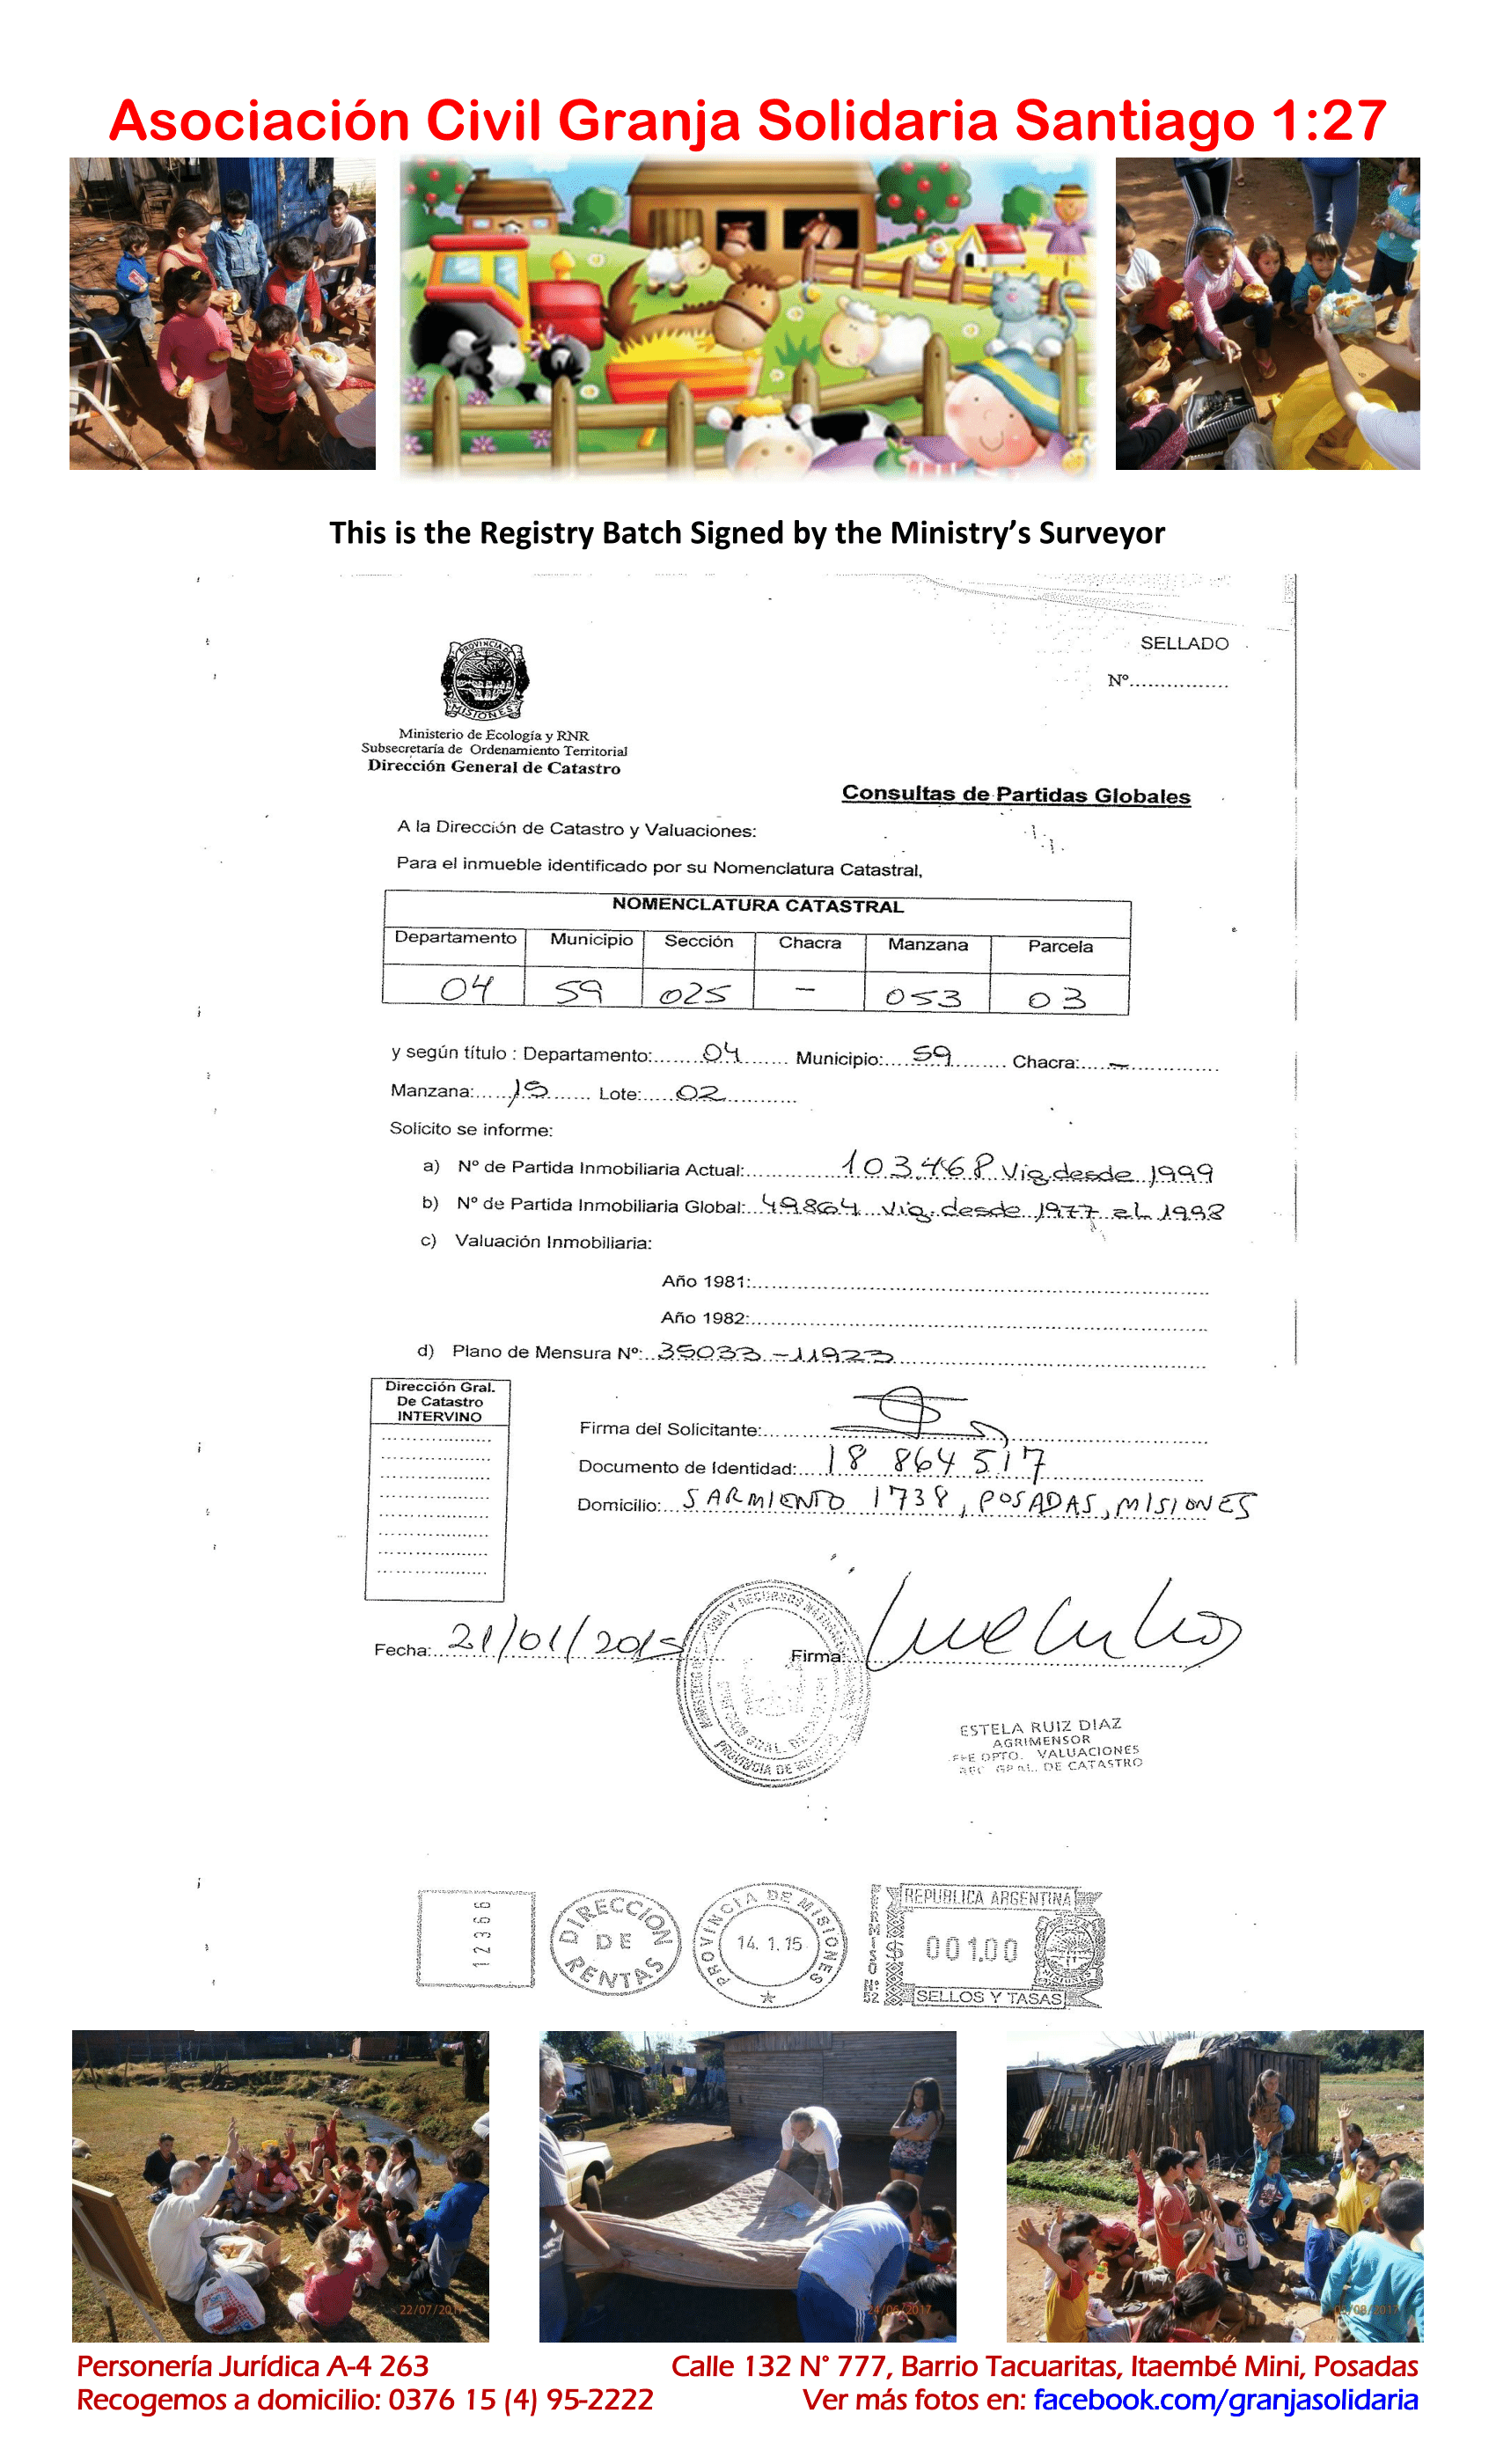 Asociación Civil Granja Solidaria Santiago 1:27
This is the Registry Batch Signed by the Ministry's Surveyor
SELLADO
Nº...............
PROVINCIA DE
MISIONES
Ministerio de Ecología y RNR
Subsecretaría de Ordenamiento Territorial
Dirección General de Catastro
Consultas de Partidas Globales
A la Dirección de Catastro y Valuaciones:
Para el inmueble identificado por su Nomenclatura Catastral,
NOMENCLATURA CATASTRAL
Departamento Municipio Sección Chacra Manzana Parcela
04 59 025 - 053 03
y según título : Departamento: 04 Municipio: 59 Chacra: -
Manzana: 15 Lote: 02
Solicito se informe:
a) Nº de Partida Inmobiliaria Actual: 103.468 Vig. desde 1999
b) Nº de Partida Inmobiliaria Global: 49864 vig. desde 1977 al 1998
c) Valuación Inmobiliaria:
Año 1981:
Año 1982:
d) Plano de Mensura Nº: 35033-11923
Dirección Gral.
De Catastro
INTERVINO
Firma del Solicitante:
Documento de Identidad: 18 864 517
Domicilio: SARMIENTO 1738, POSADAS, MISIONES
Fecha: 21/01/2015
Firma:
PROVINCIA DE
ESTELA RUIZ DIAZ
AGRIMENSOR
DPTO. VALUACIONES
GRAL. DE CATASTRO
12366
DIRECCION
DE
RENTAS
PROVINCIA DE MISIONES
14. 1. 15
PERMISO Nº 52
REPUBLICA ARGENTINA
$ 001.00
SELLOS Y TASAS
22/07/2017
24/06/2017
05/08/2017
Personería Jurídica A-4 263
Calle 132 N° 777, Barrio Tacuaritas, Itaembé Mini, Posadas
Recogemos a domicilio: 0376 15 (4) 95-2222
Ver más fotos en: facebook.com/granjasolidaria